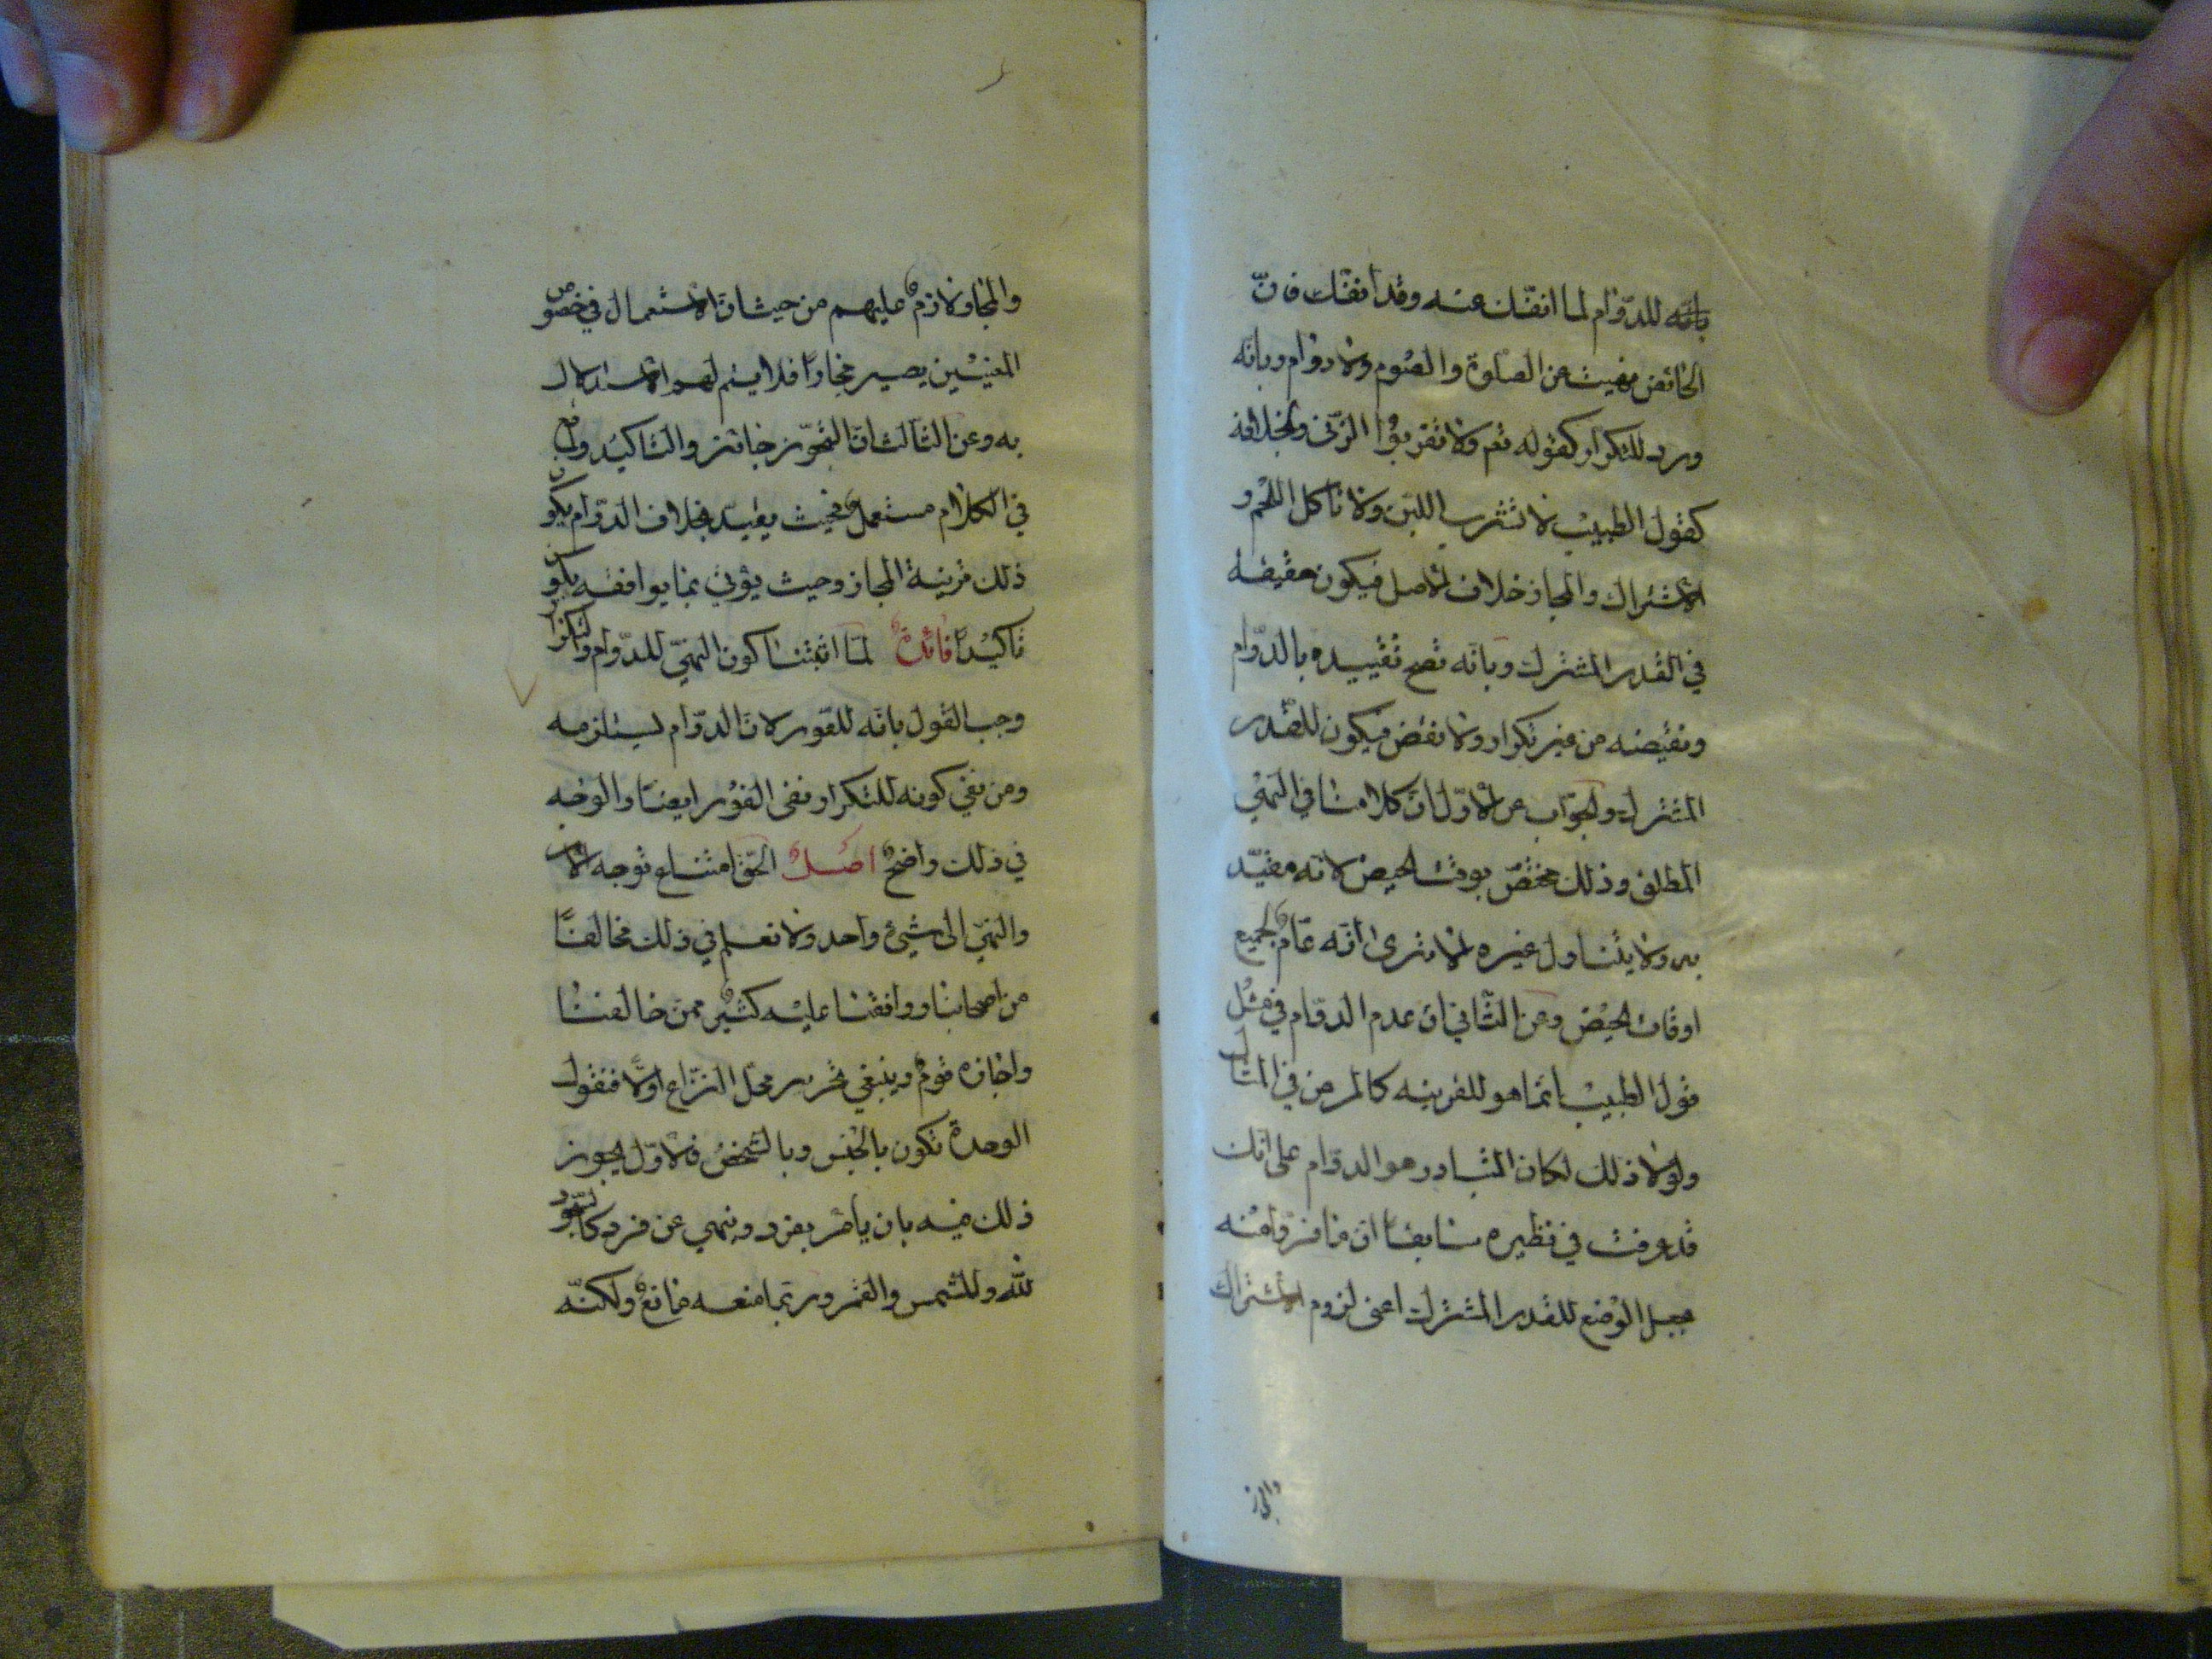 بانّه للدّوام لما انفّك عنه وقد انفّك فانّ
الحائض نهيت عن الصلوة والصّوم ولا دوام وبانّه
ورد للتكرار كقوله تعم ولا تقربوا الزّنى وبخلافه
كقول الطبيب لا تشرب اللبن ولا تاكل اللحم و
الاشتراك والمجاز خلاف الاصل فيكون حقيقة
في القدر المشترك وبانّه تصح تقييده بالدّوام
ونقيضه من غير تكرار ولا نقض فيكون للقدر
المشترك والجواب عن الاوّل انّ كلامنا في النهي
المطلق وذلك مختصّ بوقت الحيض لانّه مقيّد
به ولا يتناول غيره الا ترى انّه عامّ لجميع
اوقات الحيض وعن الثّاني انّ عدم الدوّام في مثل
قول الطبيب انّما هو للقرينه كالمرض في المثال
ولولا ذلك لكان المتبادر هو الدوّام على انّك
قد عرفت في نظيره سابقًا انّ ما فرّوا منه
بجعل الوضع للقدر المشترك اعنى لزوم الاشتراك
والمجاز
والمجاز لازم عليهم من حيث انّ الاستعمال في خصوص
المعنيين يصير مجازًا فلا يتم لهم الاستدلال
به وعن الثّالث انّ التجوّز جائز والتّاكيد واقع
في الكلام مستعمل فحيث يقيّد بخلاف الدوّام يكون
ذلك قرينة المجاز وحيث يؤتى بما يوافقه يكون
تاكيدًا فائدة لمّا اثبتنا كون النهيّ للدّوام والتكرار
وجب القول بانّه للفور لانّ الدوّام يستلزمه
ومن نفى كونه للتكرار نفى الفور ايضًا والوجه
في ذلك واضح اصل الحقّ امتناع توجه الامر
والنهيّ الى شيئ واحد ولا نعلم في ذلك مخالفًا
من اصحابنا ووافقنا عليه كثير ممن خالفنا
واجازه قوم وينبغي تحرير محلّ النزّاع اوّلًا فنقول
الوحدة تكون بالجنس وبالشّخص فالاوّل يجوز
ذلك فيه بان يأمر بفرد وينهي عن فرد كالسّجود
للّه وللشّمس والقمر وربّما منعه مانع ولكنّه